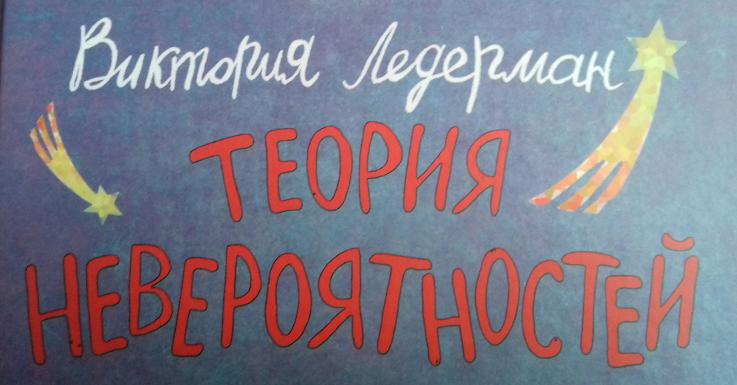 Виктория Ледерман
ТЕОРИЯ
НЕВЕРОЯТНОСТЕЙ